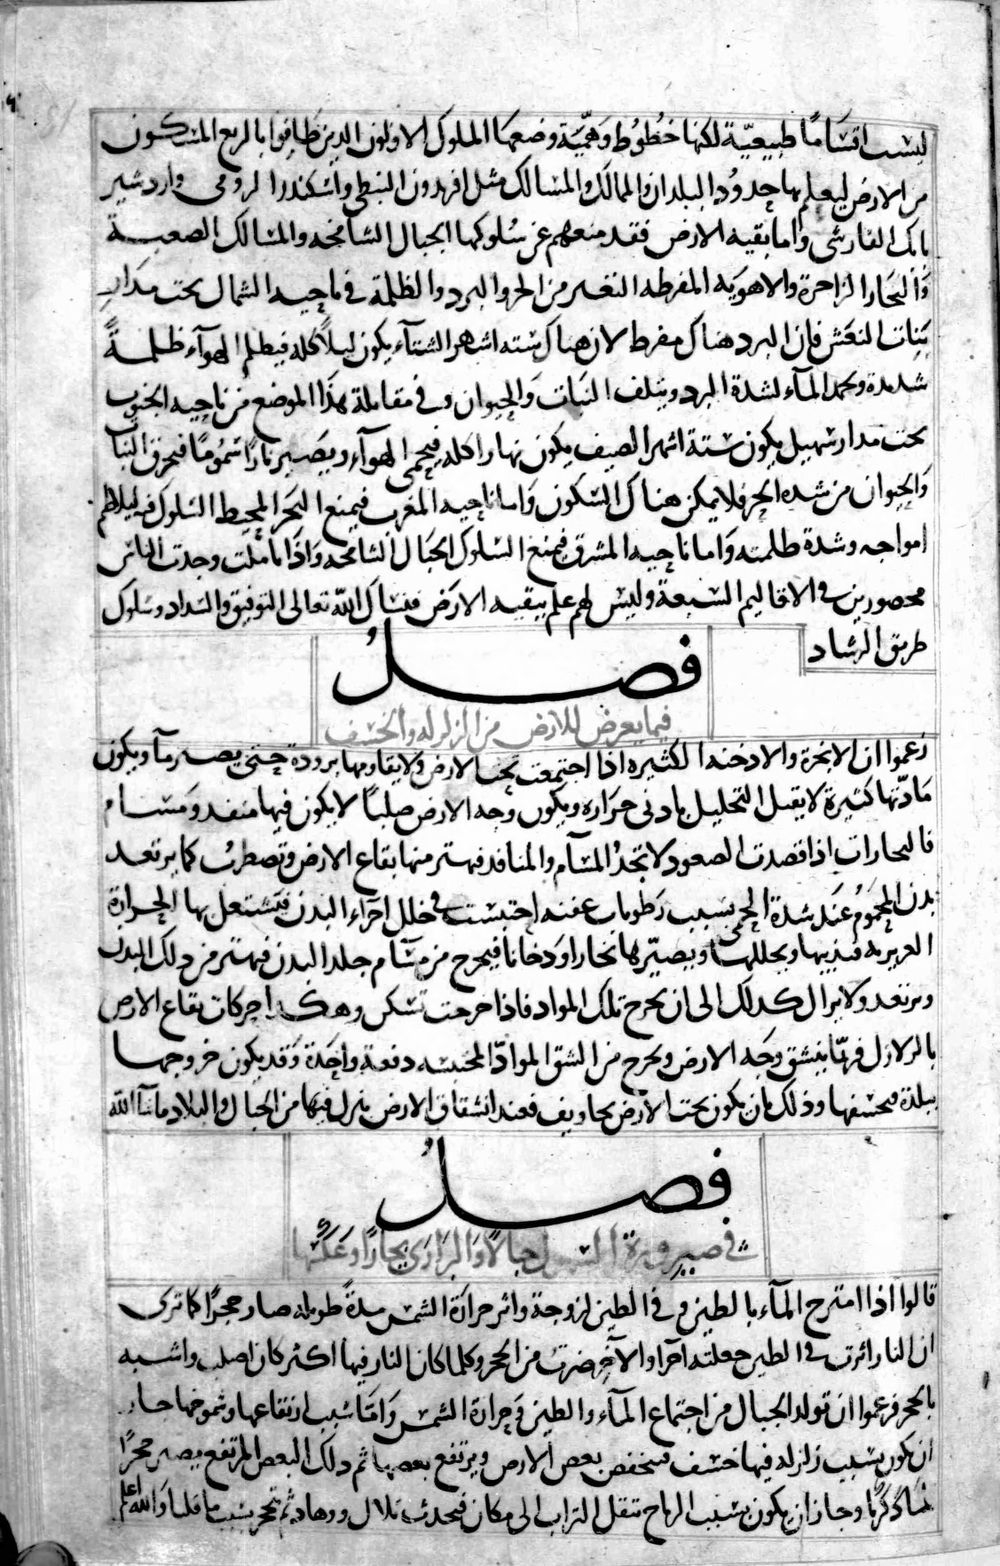 ليست اقسامًا طبيعيّة لكنها خطُوط وَهميّة وضعها الملوك الاولون الدين طافوا بالربع المسكون
من الارض ليعلم بها حدوُد البلدان والممالك والمسالك مثل افريدون النبطي واسكندر الرومى واردشير
بابك الفارسى واما بقيه الارض فقد منعهم عن سُلوكها الجبال الشامخه والمسالك الصعبة
وَالبحار الزاخرة والاهويه المفرطه التغير من الحر والبرد والظلمة فى ناحيه الشمال تحت مدَارِ
بَنات النعش فان البرد هناك مفرط لان هناك سته اشهر الشتآء يكون ليلاً كله فيظلم الهوآء ظلمةً
شديدة ويحمد المآء لشدة البرد ويتلف النبات وَالحيوان وفى مقابلة هذا الموضع من ناحيه الجنوب
تحت مدار سهيل يكون ستة اشهر الصيف يكون نهارا كله فيحمى الهوآء ويَصير نارًا سمُومًا فيحرق النبات
وَالحيوان من شده الحر فلا يمكن هناك السكون وَاما ناحيه المغرب فيمنع البحر المحيط السلوك فيه لتلاطم
امواجه وشدة ظلمته وَاما ناحيه المشرق فيمنع السلوك الجبال الشامخه وَاذا تاملت وجدت الناس
محصورين فى الاقاليم السبعة وليس لهم علم ببقيه الارض فنسال الله تعالى التوفيق والسداد وسلوك
طريق الرشاد
فصلُ
فيما يعرض للارض من الزلزله والخسف
زعموا ان الابخرة والادخنه الكثيره اذا اجتمعت تحت الارض ولا يقاومها برودة حتى يصير مآ ويكون
مَادّتها كثيرة لا يقبل التحليل بادنى حرَاره ويكون وجه الارض صلبًا لا يكون فيها منفد ومَسَام
فالبحارات اذا قصدت الصعود لا تجدُ المسَآم والمنافد فيهتز منها بقاع الارض وتضطربُ كما يرتعد
بدن المحمُوم عند شدة الحمى بسبب رَطوبات عفنه احتبست فى خلل اجزآء البدن فتشتعل بها الحرارة
الغريزيه فيذيبها ويحللها ويصيّرها بخارا وَدخانا فيخرج من مسَآم جلد البدن فيهتز من دلك البدن
ويرتعد ولا يزال كدلك الى ان يخرج تلك المواد فاذا خرجت تسكن وهكذا حركات بقاع الارض
بالزلازل فربّما ينشق وجه الارض ويخرج من الشق الموادّ المحتبسه دفعة وَاحدَة وَقد يكون خروجها
ببلدة فيخسفها وذلك بان يكون تحت الارض تجاويف فعند انشقاق الارض ينزل فيها من الجبال والبلاد ما شآ الله
فصلُ
فى صيرورة السهول جبالاً وَالبرَارى بحارًا وعَكسها
قالوا اذا امتزج المآء بالطين وفى الطين لزوجة واثر حرارَة الشمس مدةً طويله صار حجرًا كما ترى
ان النار اثرت فى الطين جعلته آجرا والآجر ضربٌ من الحجر وكلما كان النار فيها اكثر كان اصلب واشبه
بالحجر فزعموا ان تولد الجبال من اجتماع المآء والطين وحرارة الشمس وَامّا سَبب ارتفاعها وشموخها جاز
ان يكون بسبب زلزله فيها خسف فينخفض بعض الارض ويرتفع بعضها ثم دلك البعض المرتفع يصير حجرًا
لما ذكرنا وجاز ان يكون بسبب الرياح تنقل التراب الى مكان فيحدث تلال ووهاد ثم تحجر بسبب ما قلنا وَالله اعلم